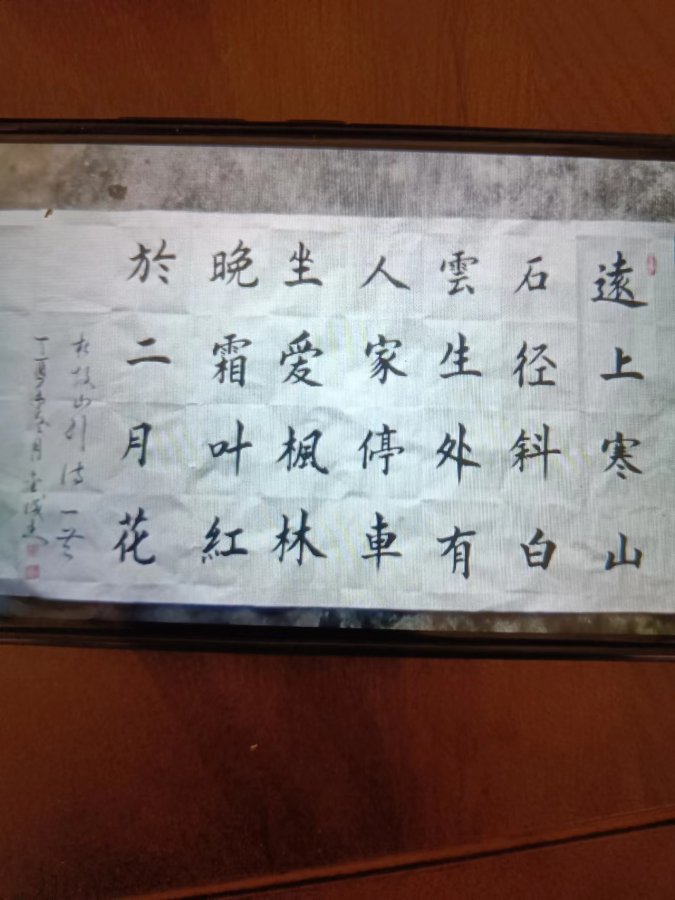 遠上寒山
石径斜白
雲生处有
人家停車
坐愛楓林
晚霜叶紅
於二月花
杜牧山行诗一首